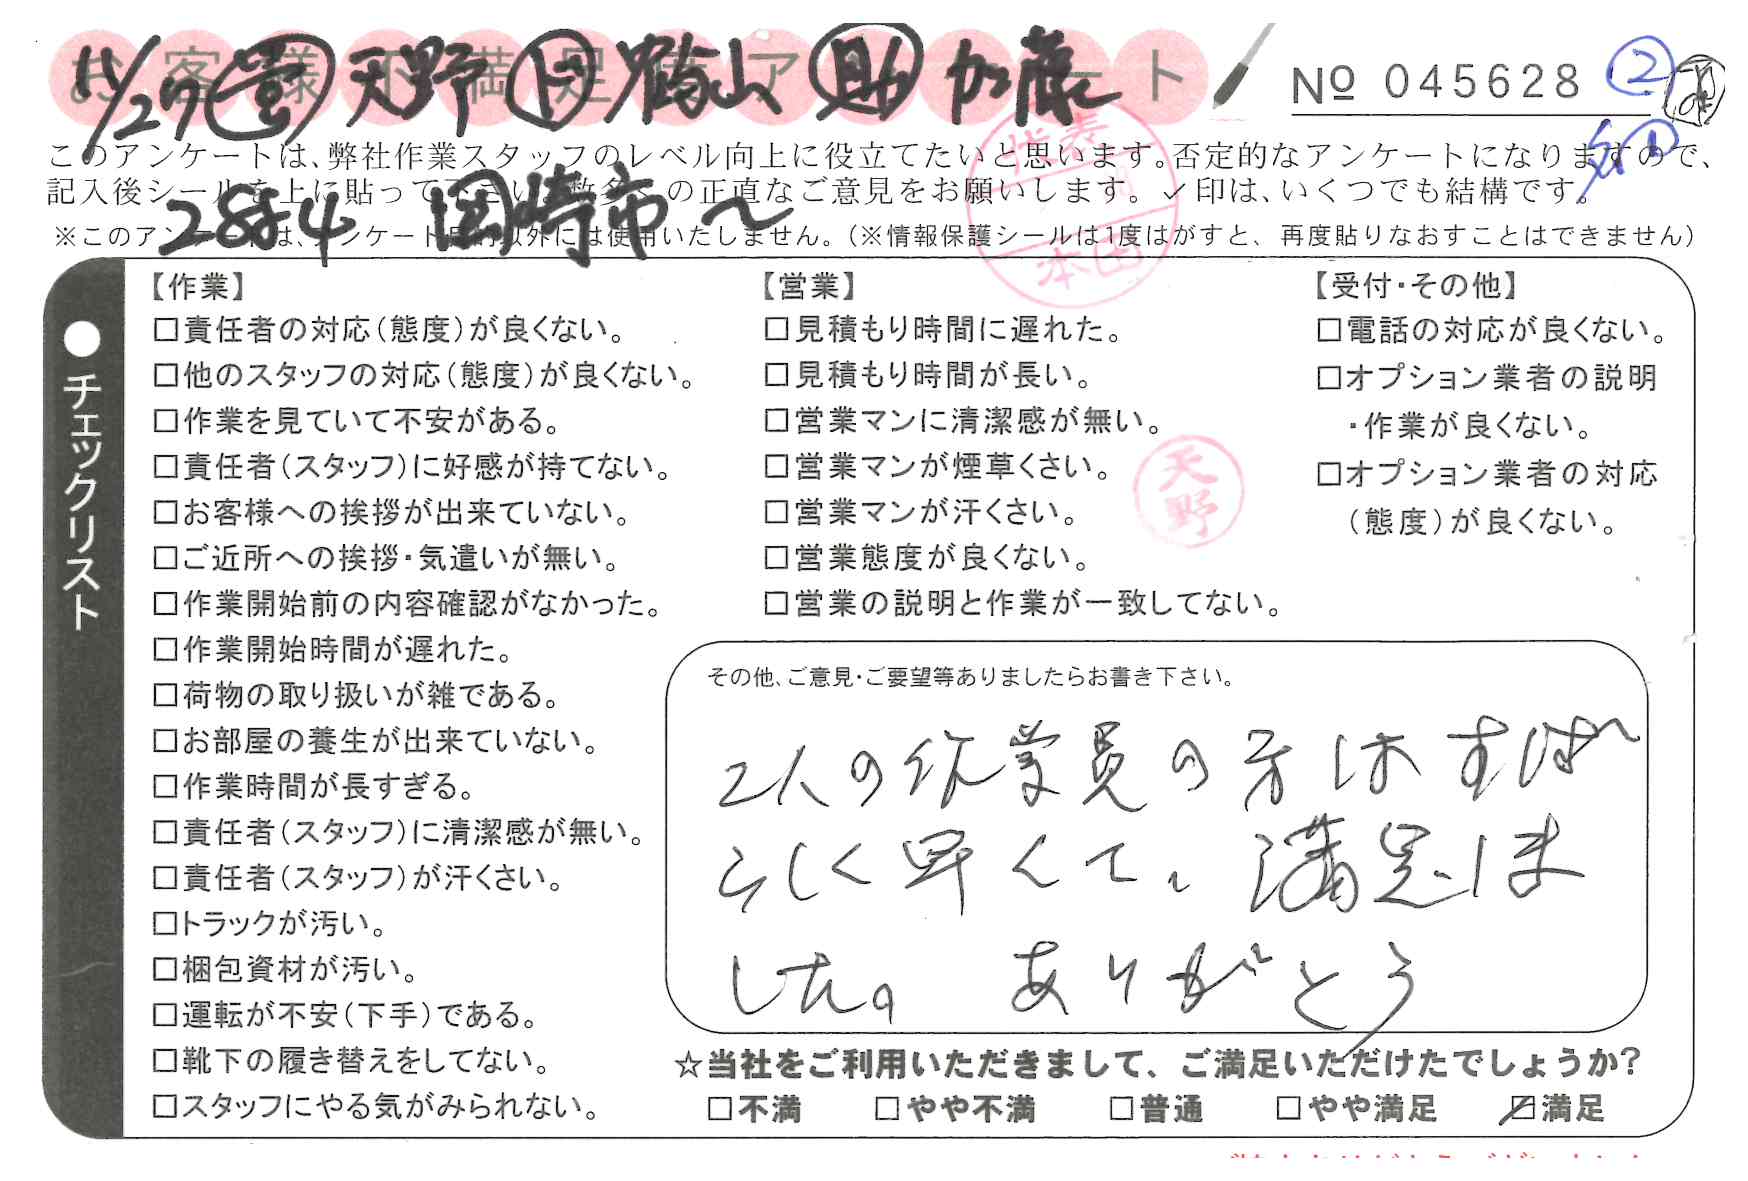 お客様不満足度アンケート
11/27 営 天野 ト 鶴山 助 加藤
№ 045628 ②
このアンケートは、弊社作業スタッフのレベル向上に役立てたいと思います。否定的なアンケートになりますので、
記入後シールを上に貼って下さい。数多くの正直なご意見をお願いします。✓印は、いくつでも結構です。
岡崎市〜
※このアンケートは、アンケート目的以外には使用いたしません。（※情報保護シールは1度はがすと、再度貼りなおすことはできません）
代表
本田
●チェックリスト
【作業】
□責任者の対応（態度）が良くない。
□他のスタッフの対応（態度）が良くない。
□作業を見ていて不安がある。
□責任者（スタッフ）に好感が持てない。
□お客様への挨拶が出来ていない。
□ご近所への挨拶・気遣いが無い。
□作業開始前の内容確認がなかった。
□作業開始時間が遅れた。
□荷物の取り扱いが雑である。
□お部屋の養生が出来ていない。
□作業時間が長すぎる。
□責任者（スタッフ）に清潔感が無い。
□責任者（スタッフ）が汗くさい。
□トラックが汚い。
□梱包資材が汚い。
□運転が不安（下手）である。
□靴下の履き替えをしてない。
□スタッフにやる気がみられない。
【営業】
□見積もり時間に遅れた。
□見積もり時間が長い。
□営業マンに清潔感が無い。
□営業マンが煙草くさい。
□営業マンが汗くさい。
□営業態度が良くない。
□営業の説明と作業が一致してない。
天野
【受付・その他】
□電話の対応が良くない。
□オプション業者の説明
・作業が良くない。
□オプション業者の対応
（態度）が良くない。
その他、ご意見・ご要望等ありましたらお書き下さい。
2人の作業員の方はすば
らしく早くて、満足しま
した。ありがとう
☆当社をご利用いただきまして、ご満足いただけたでしょうか？
□不満 □やや不満 □普通 □やや満足 ☑満足